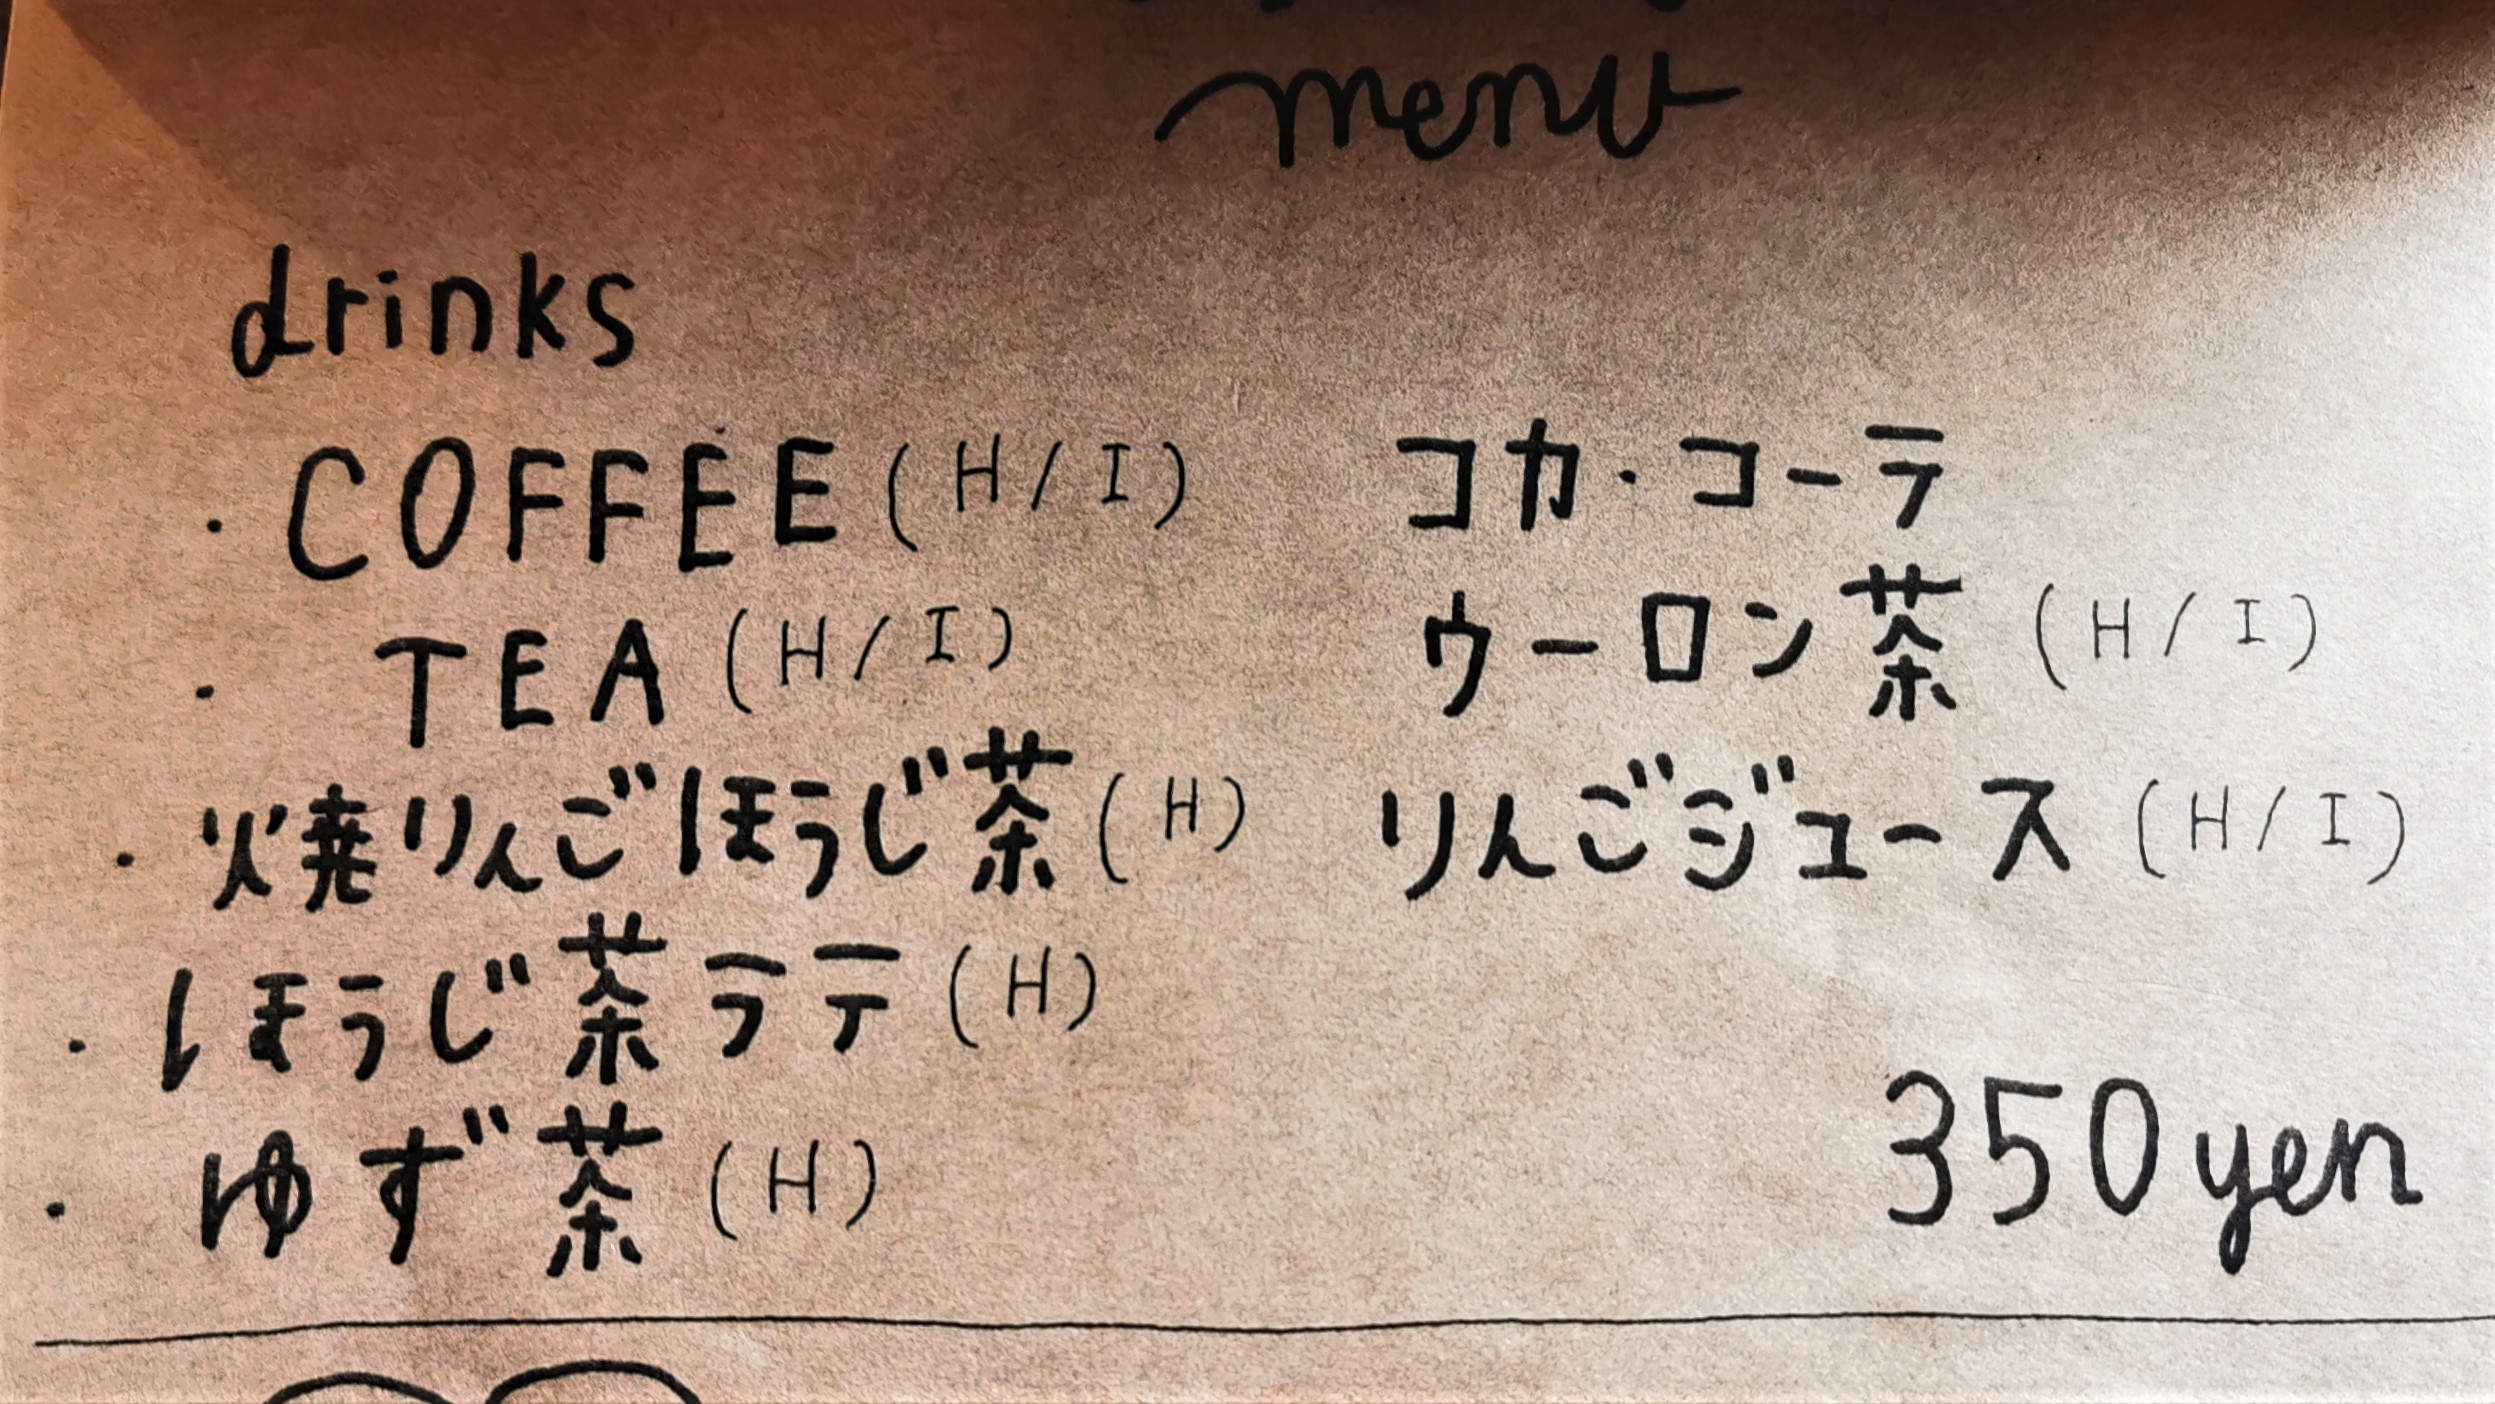 menu
drinks
・COFFEE (H/I)
・TEA (H/I)
・焼りんごほうじ茶 (H)
・ほうじ茶ラテ (H)
・ゆず茶 (H)
コカ・コーラ
ウーロン茶 (H/I)
りんごジュース (H/I)
350yen